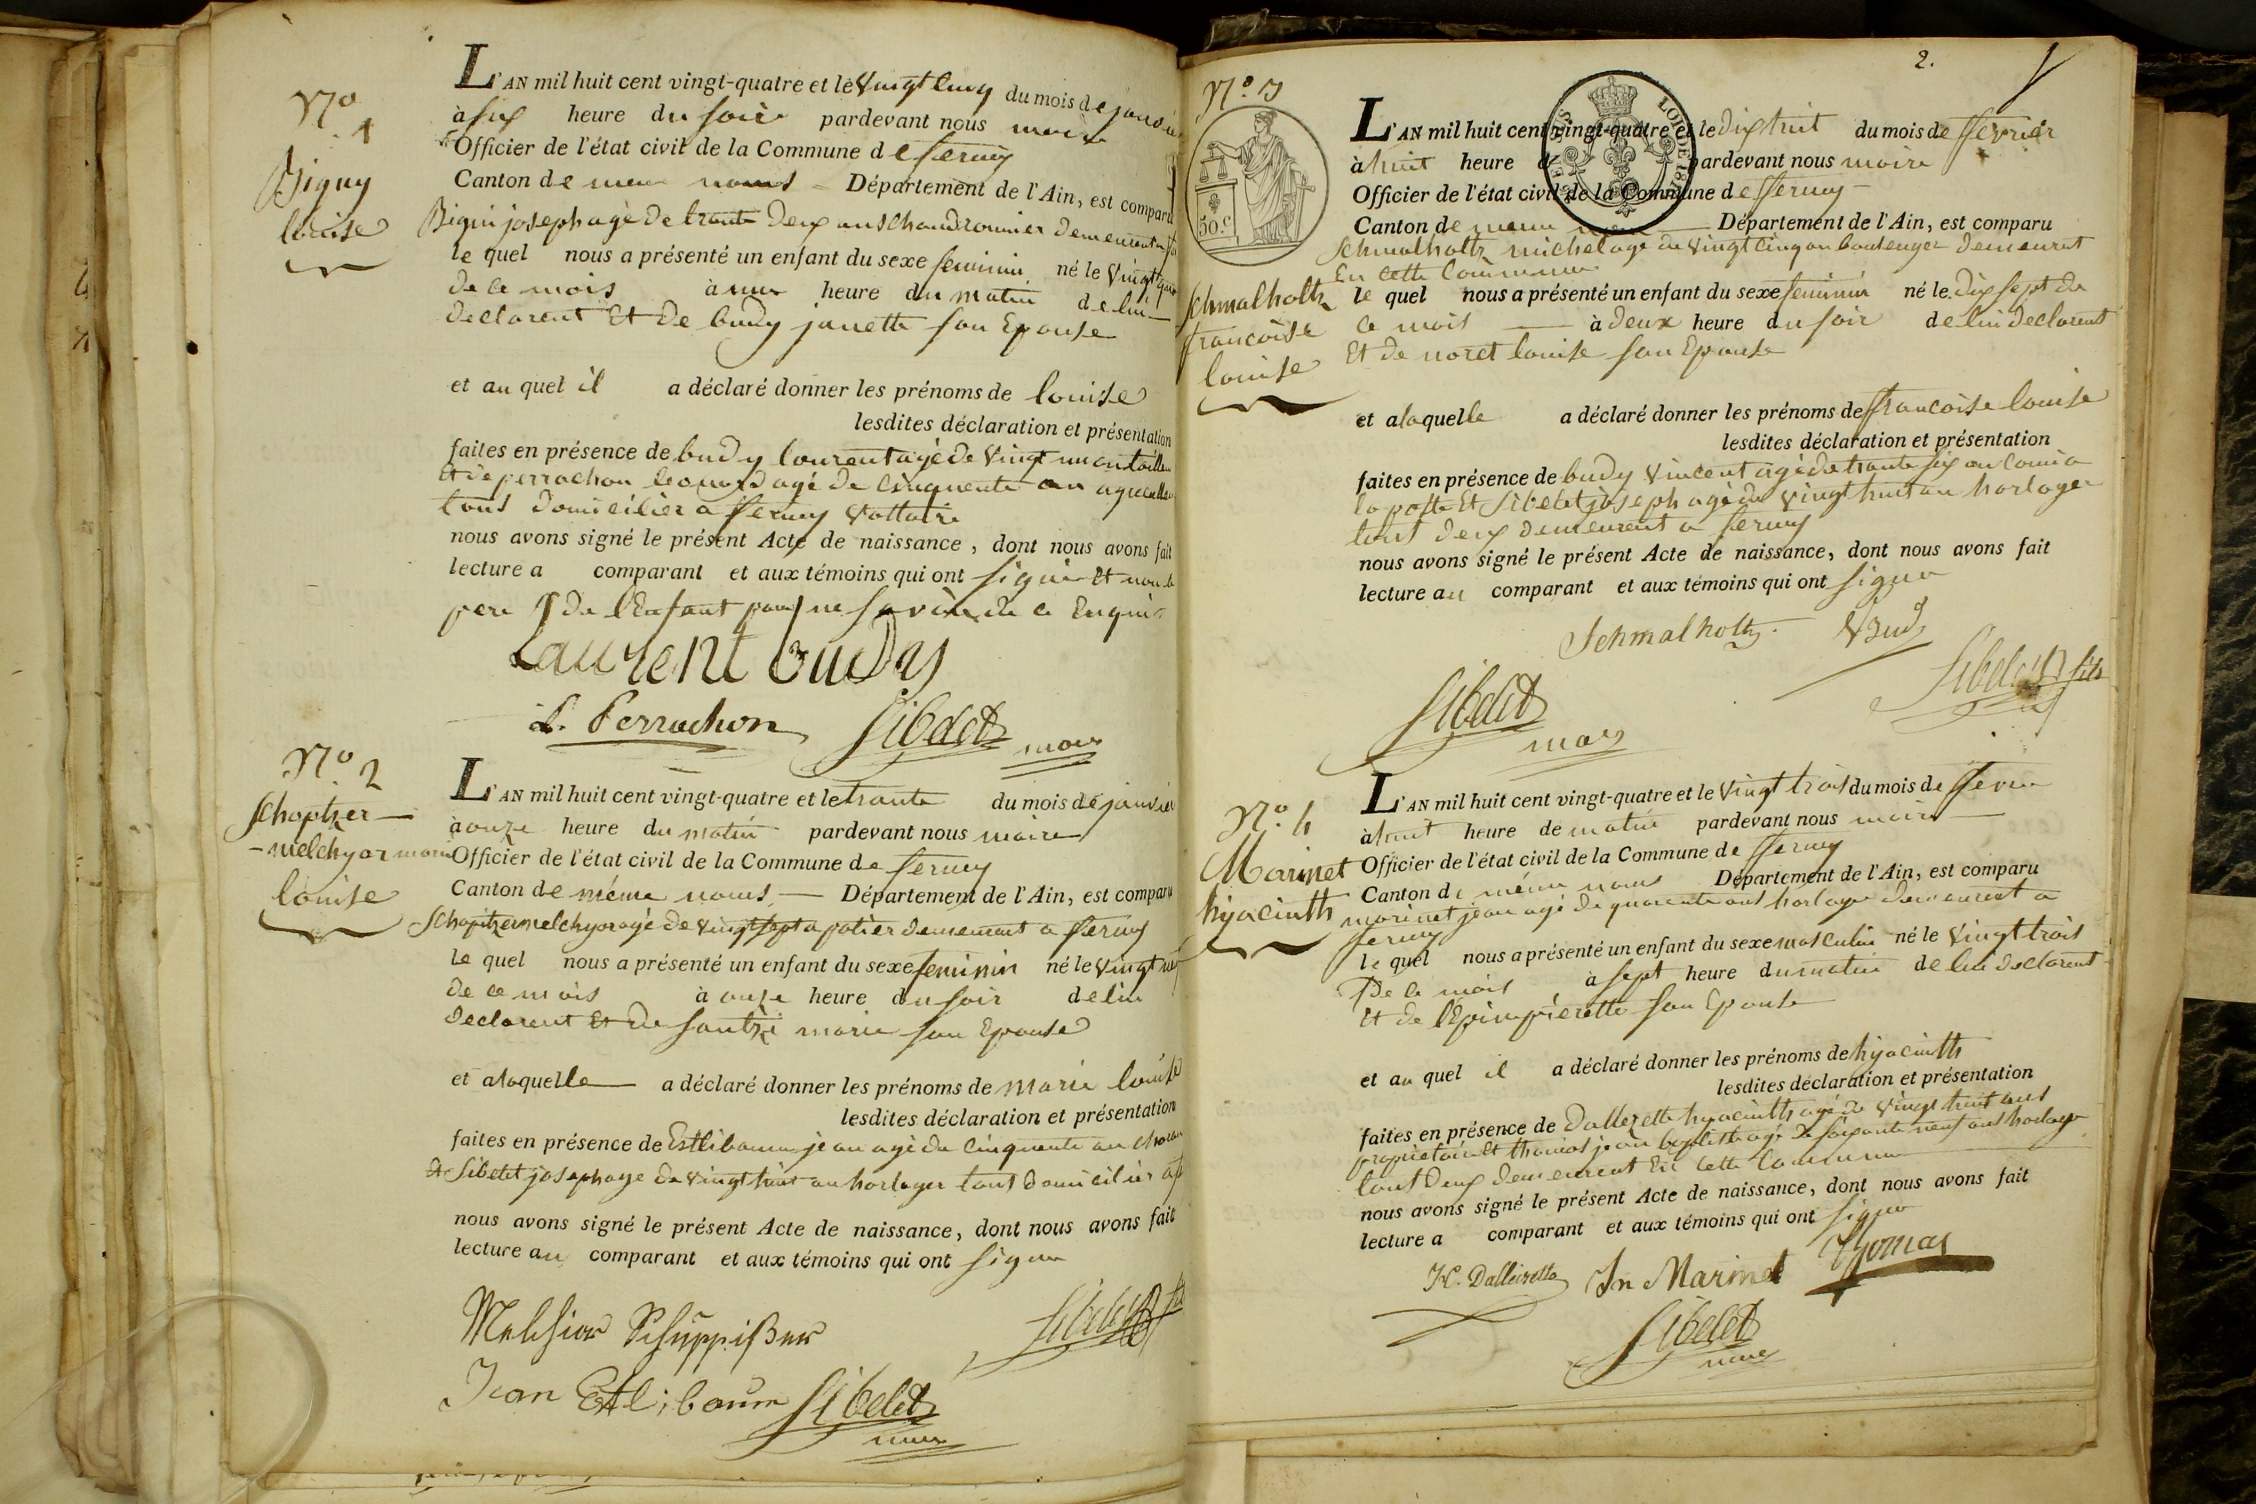 N° 1
Biguy
louise
L'AN mil huit cent vingt-quatre et le vingt cinq du mois de janvier
à six heure du soir pardevant nous maire
Officier de l'état civil de la Commune de ferney
Canton de meme noms Département de l'Ain, est comparu
Bigui joseph agé de trante deux ans chaudronnier
le quel nous a présenté un enfant du sexe feminin né le vingt
de ce mois à une heure du matin de lui
declarent Et de budy janette son Epouse
et au quel il a déclaré donner les prénoms de louise
lesdites déclaration et présentation
faites en présence de budy lourent agé de vingt un an
Et de perrachon leonard agé de cinquente an
tous domicilier a ferney voltaire
nous avons signé le présent Acte de naissance, dont nous avons fait
lecture a comparant et aux témoins qui ont signé Et non le
pere de l'Enfant pour ne savoir de ce Enquis
Laurent Budy
L. Perrachon Sibelet maire
N° 2
Schoptzer
melchyor marie
louise
L'AN mil huit cent vingt-quatre et le trante du mois de janvier
à onze heure du matin pardevant nous maire
Officier de l'état civil de la Commune de ferney
Canton de méme noms Département de l'Ain, est comparu
melchyor agé de vingt sept a potier demeurant a ferney
le quel nous a présenté un enfant du sexe feminin né le vingt neuf
de ce mois à onze heure du soir de lui
declarent Et de marie son Epouse
et a laquelle a déclaré donner les prénoms de marie louise
lesdites déclaration et présentation
faites en présence de Estlibaum jean agé de cinquente an
Et Sibelet joseph age de vingt huit an horloger tous domicilier a f
nous avons signé le présent Acte de naissance, dont nous avons fait
lecture au comparant et aux témoins qui ont signe
Melchior Schuppißer Sibelet fils
Jean Ettlibaum Sibelet
maire
2.
N° 3
50.c
LOI DE 1816
Schmalholtz
francoise
louise
L'AN mil huit cent vingt-quatre et le dix huit du mois de fevrier
à huit heure d pardevant nous maire
Officier de l'état civil de la Commune de ferney
Canton de meme Département de l'Ain, est comparu
Schmalholtz michel age de vingt cinq an boulenger demeurent
En cette Commune
le quel nous a présenté un enfant du sexe feminin né le dix sept de
ce mois à deux heure du soir de lui declarent
Et de noret louise son Epouse
et a laquelle a déclaré donner les prénoms de francoise louise
lesdites déclaration et présentation
faites en présence de budy vincent agé de trante six an comis a
la poste Et Sibelet joseph agé de vingt huit an horloger
tous deux demeurent a ferney
nous avons signé le présent Acte de naissance, dont nous avons fait
lecture au comparant et aux témoins qui ont signe
Schmalholtz. VBudy
Sibelet fils
Sibelet
maire
N° 4
Marinet
hyacinth
L'AN mil huit cent vingt-quatre et le vingt trois du mois de
à huit heure de matin pardevant nous maire
Officier de l'état civil de la Commune de ferney
Canton de méme noms Département de l'Ain, est comparu
marinet jean agé de quarente ans horloger demeurent a
ferney
le quel nous a présenté un enfant du sexe masculin né le vingt trois
De ce mois à sept heure du matin de lui declarent
Et de l'Epin pierette son Epouse
et au quel il a déclaré donner les prénoms de hyacinth
lesdites déclaration et présentation
faites en présence de Dallezette hyacinth agé de vingt huit ans
propriétaire Et thomas jean baptiste agé de soixante neuf ans horloger
tous deux demeurent En cette Commune
nous avons signé le présent Acte de naissance, dont nous avons fait
lecture a comparant et aux témoins qui ont signe
Thomas
H. Dalleizette Jn Marinet
Sibelet
maire